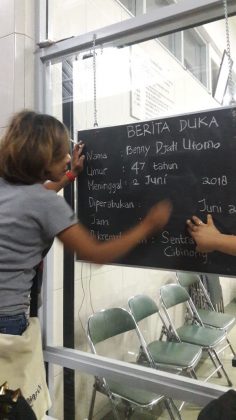 BERITA DUKA
Nama : Benny Djati Utomo
Umur : 47 tahun
Meninggal : 2 Juni 2018
Diperabukan : Juni 2
Jam
Dikremasikan : Sentra
Cibinong